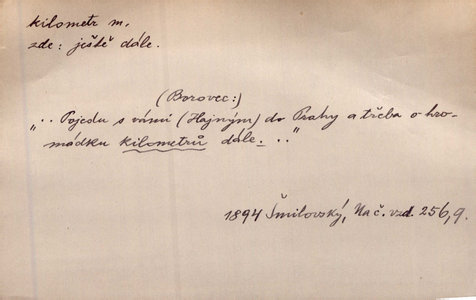 kilometr m.
zde: ještě dále.
(Borovec:)
„.. Pojedu s vámi (Hajným) do Prahy a třeba o hro-
mádku kilometrů dále. .."
1894 Šmilovský, Na č. vzd. 256,9.